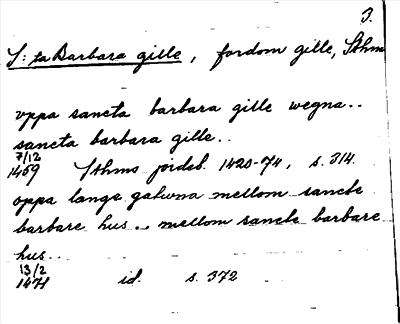 3.
S:ta Barbara gille, fordom gille, Sthm
vppa sancta barbara gille wegna..
sancta barbara gille..
7/12
1459 Sthms jordeb. 1420-74, s. 314.
oppa lange gatwna mellom sancte
barbare hus .. mellom sancte barbare
hus..
13/2
1471 id. s. 372